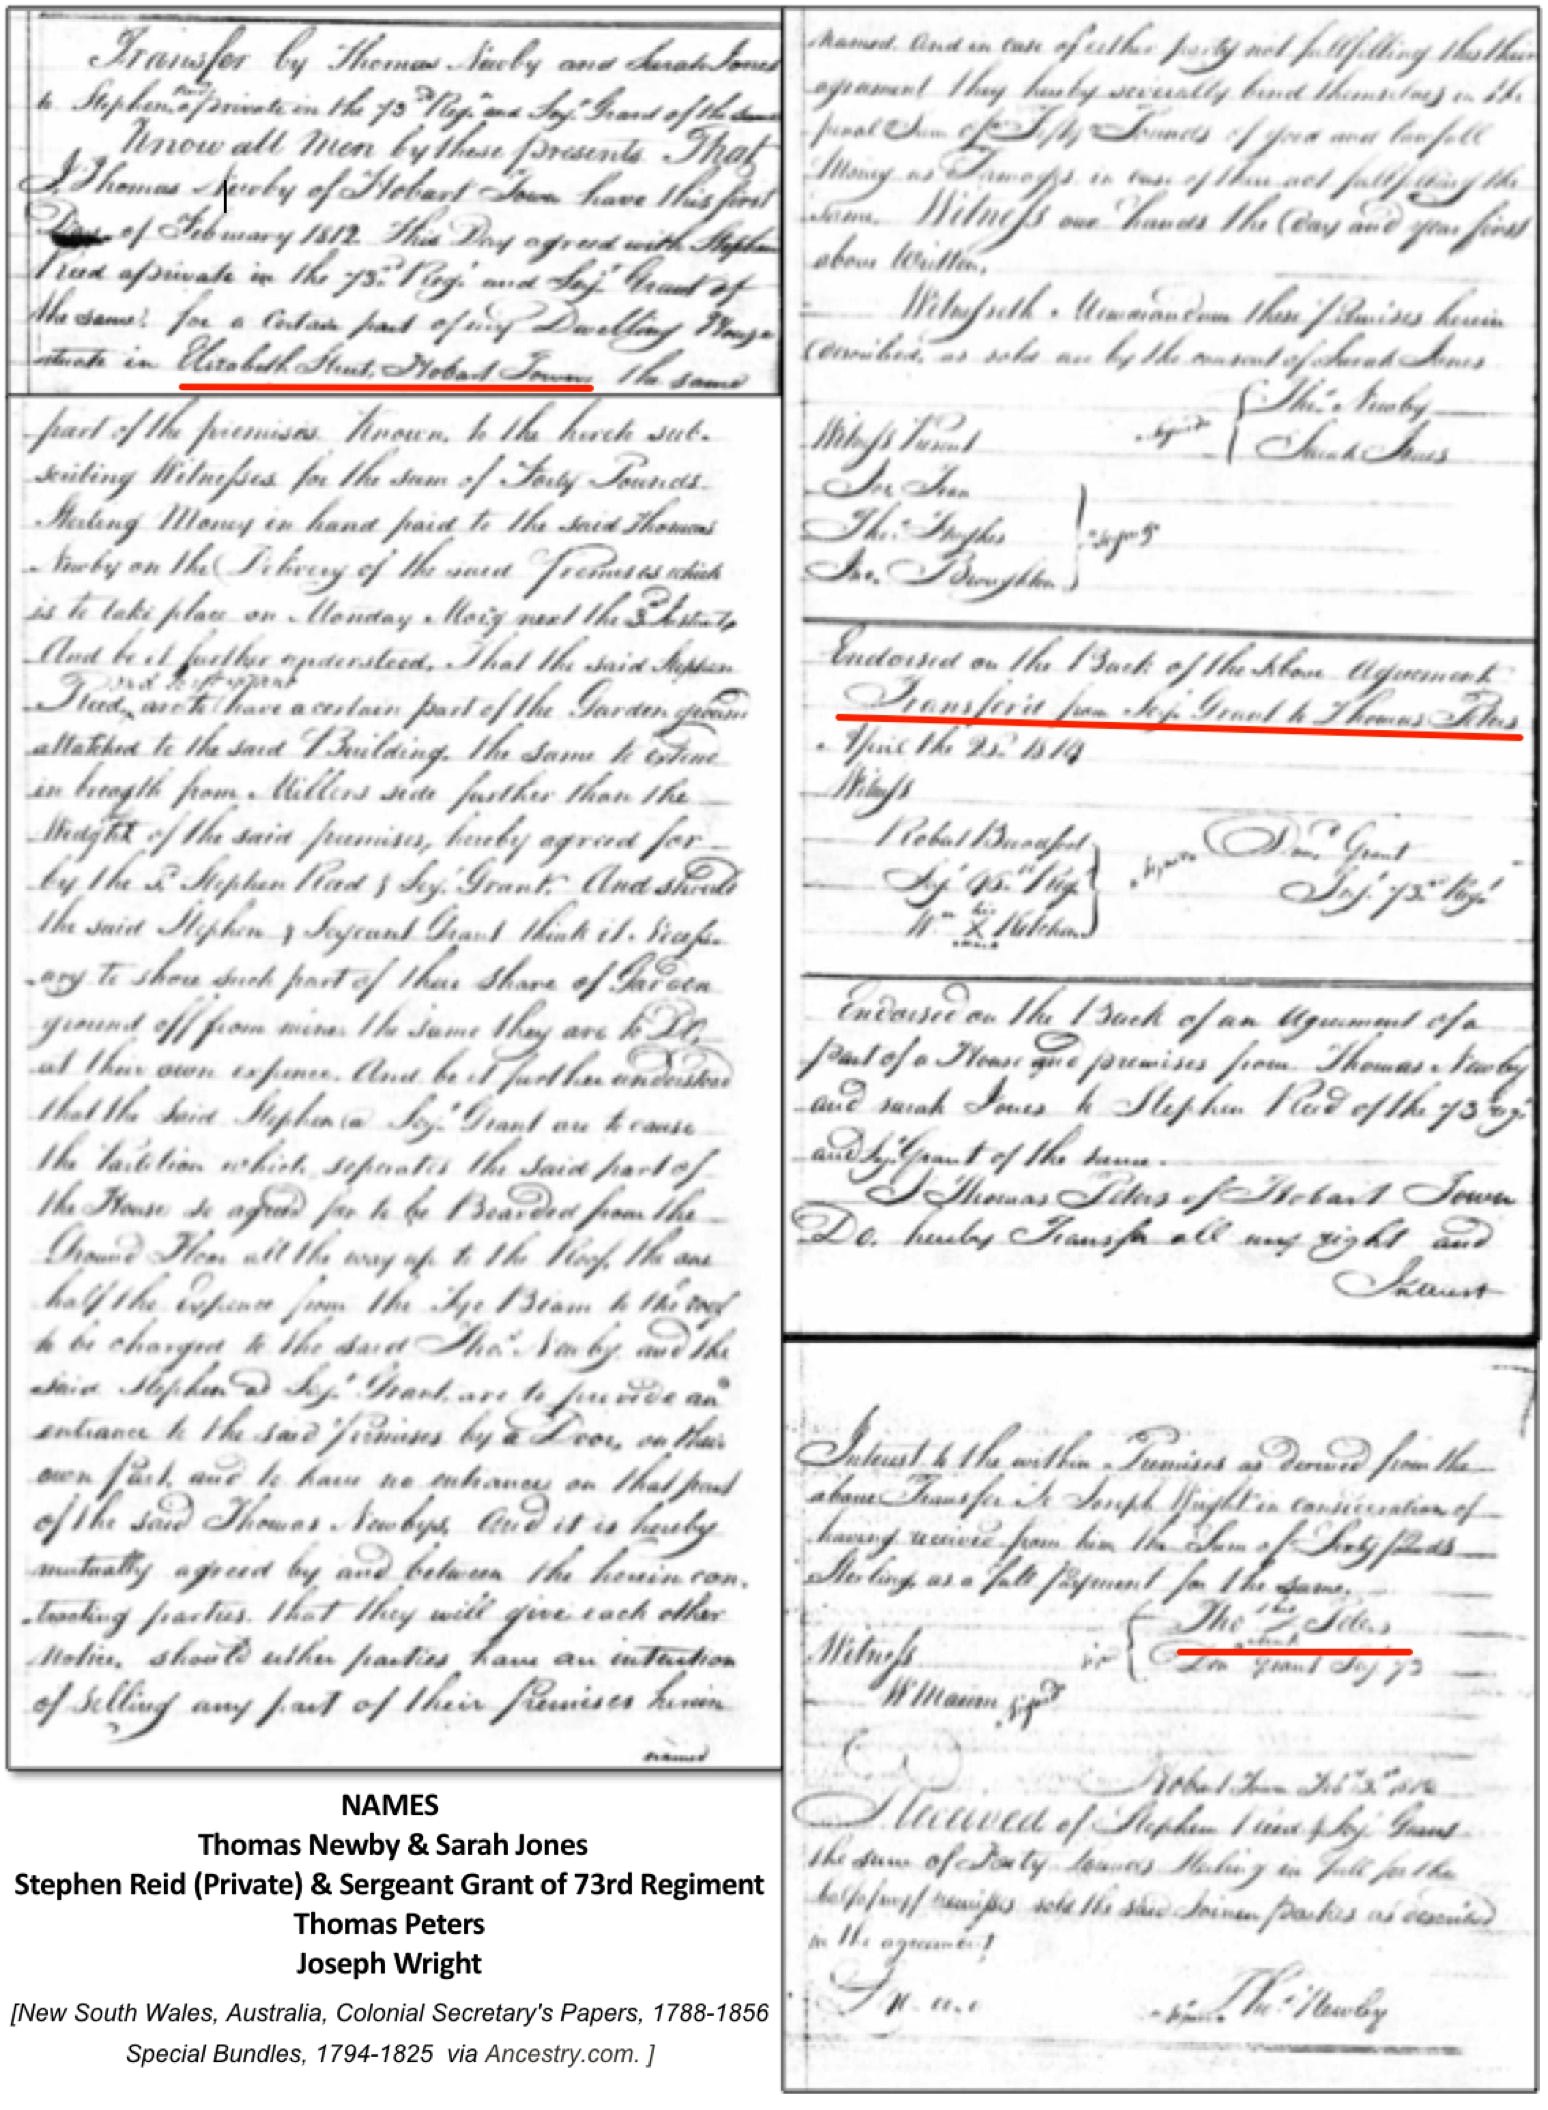 Transfer by Thomas Newby and Sarah Jones
to Stephen private in the 73rd Regt. and Serjt. Grant of the same
Know all Men by these presents That
I, Thomas Newby of Hobart Town have this first
Day of February 1812 This Day agreed with Stephen
Reed a private in the 73rd Regt. and Serjt. Grant of
the same, for a Certain part of my Dwelling House
situate in Elizabeth Street, Hobart Town, the same
part of the premises Known, to the hereto sub-
scribing Witnesses for the sum of Forty Pounds
Sterling Money in hand paid to the said Thomas
Newby on the Delivery of the said Premises which
is to take place on Monday Mor'g next the 3d Instant,
And be it further understood, That the said Stephen
Reed, and Serjt. Grant are to have a certain part of the Garden ground
attatched to the said Building, the same to extend
in breagth from Millers side further than the
of the said premises, hereby agreed for
by the sd. Stephen Reed & Serjt. Grant. And should
the said Stephen & Serjeant Grant think it Necess-
ary to shore such part of their share of Garden
ground off from mine, the same they are to Do,
at their own expence, And be it further understood
that the said Stephen & Serjt. Grant are to cause
the Partition which seperates the said part of
the House so agreed for to be Boarded from the
Ground Floor all the way up to the Roof, the one
half the expence from the Tye Beam to the roof
to be charged to the said Thos. Newby and the
said Stephen & Serjt. Grant, are to provide an
entrance to the said Premises by a Door, on their
own part, and to have no entrance on that part
of the said Thomas Newbys, And it is hereby
mutually agreed by and between the herein con-
tracting parties, that they will give each other
Notice, should either parties have an intention
of selling any part of their Premises herein
named
named. And in case of either party not fullfilling this their
agreament they hereby severally bend themselves in the
penal Sum of Fifty Pounds of good and lawfull
Money as Damages in case of their not fullfilling the
same. Witness our hands the Day and year first
above Written,
Witnesseth Memorandum these premises herein
described, as sold are by the consent of Sarah Jones
Signed Thos. Newby
Sarah Jones
Witness Present
Thos. Hughes
Jno. Broughton
Signed
Endorsed on the Back of the Above Agreement
Transfer'd from Serjt. Grant to Thomas Peters
April the 25th
Witness
Robert
Serjt. Regt.
Wm. his X mark
Signed Grant
Serjt. 73rd Regt.
Endorsed on the Back of an Agreement of a
part of a House and premises from Thomas Newby
and sarah Jones to Stephen Reed of the 73 regt
and Serjt. Grant of the same.
I Thomas Peters of Hobart Town
Do. hereby Transfer all my right and
Interest
Interest to the within Premises as derived from the
above Transfer to Joseph Wright in consideration of
having received from him the Sum of Sixty pounds
Sterling, as a full Payment for the same.
Tho his mark Peters
Grant Serjt 73
Witness
Signed
Hobart Town Feby 3rd 1812
Received of Stephen Reed & Serjt. Grant
the sum of Forty Pounds Sterling in full for the
half of my premises sold the said Joinen parties as described
in the agreement
Signed Thos. Newby
NAMES
Thomas Newby & Sarah Jones
Stephen Reid (Private) & Sergeant Grant of 73rd Regiment
Thomas Peters
Joseph Wright
[New South Wales, Australia, Colonial Secretary's Papers, 1788-1856
Special Bundles, 1794-1825 via Ancestry.com. ]